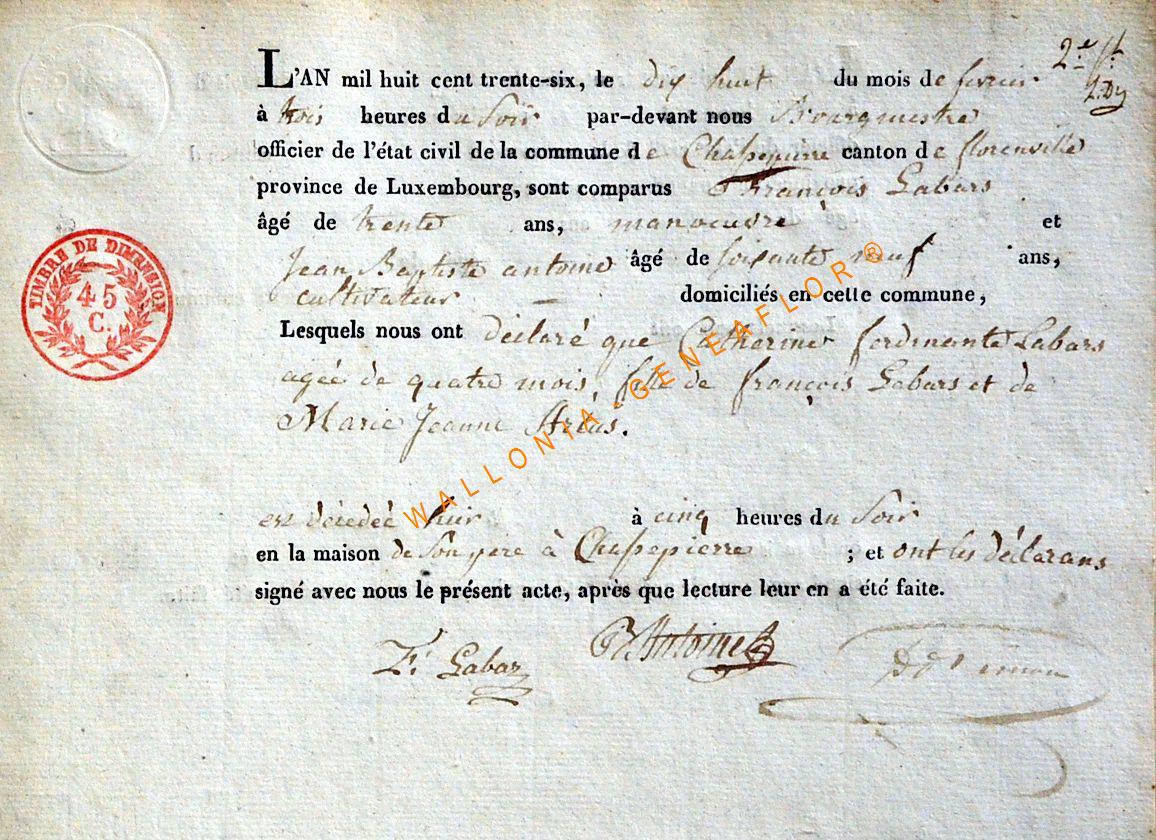 L'AN mil huit cent trente-six, le dix huit du mois de fevrier
à trois heures du Soir par-devant nous Bourgmestre
officier de l'état civil de la commune de Chassepierre canton de florenville
province de Luxembourg, sont comparus François Labars
âgé de trente ans, manoeuvre et
Jean Baptiste antoine âgé de soixante neuf ans,
cultivateur — domiciliés en cette commune,
Lesquels nous ont déclaré que Catherine Labars
agée de quatre mois, fille de françois Labars et de
Marie Jeanne
est décédée hier à cinq heures du Soir
en la maison de Son père à Chassepierre ; et ont les déclarans
signé avec nous le présent acte, après que lecture leur en a été faite.
F. Labar Antoine
TIMBRE DE DIMENSION
45
C.
WALLONIA-GENEAFLOR ®